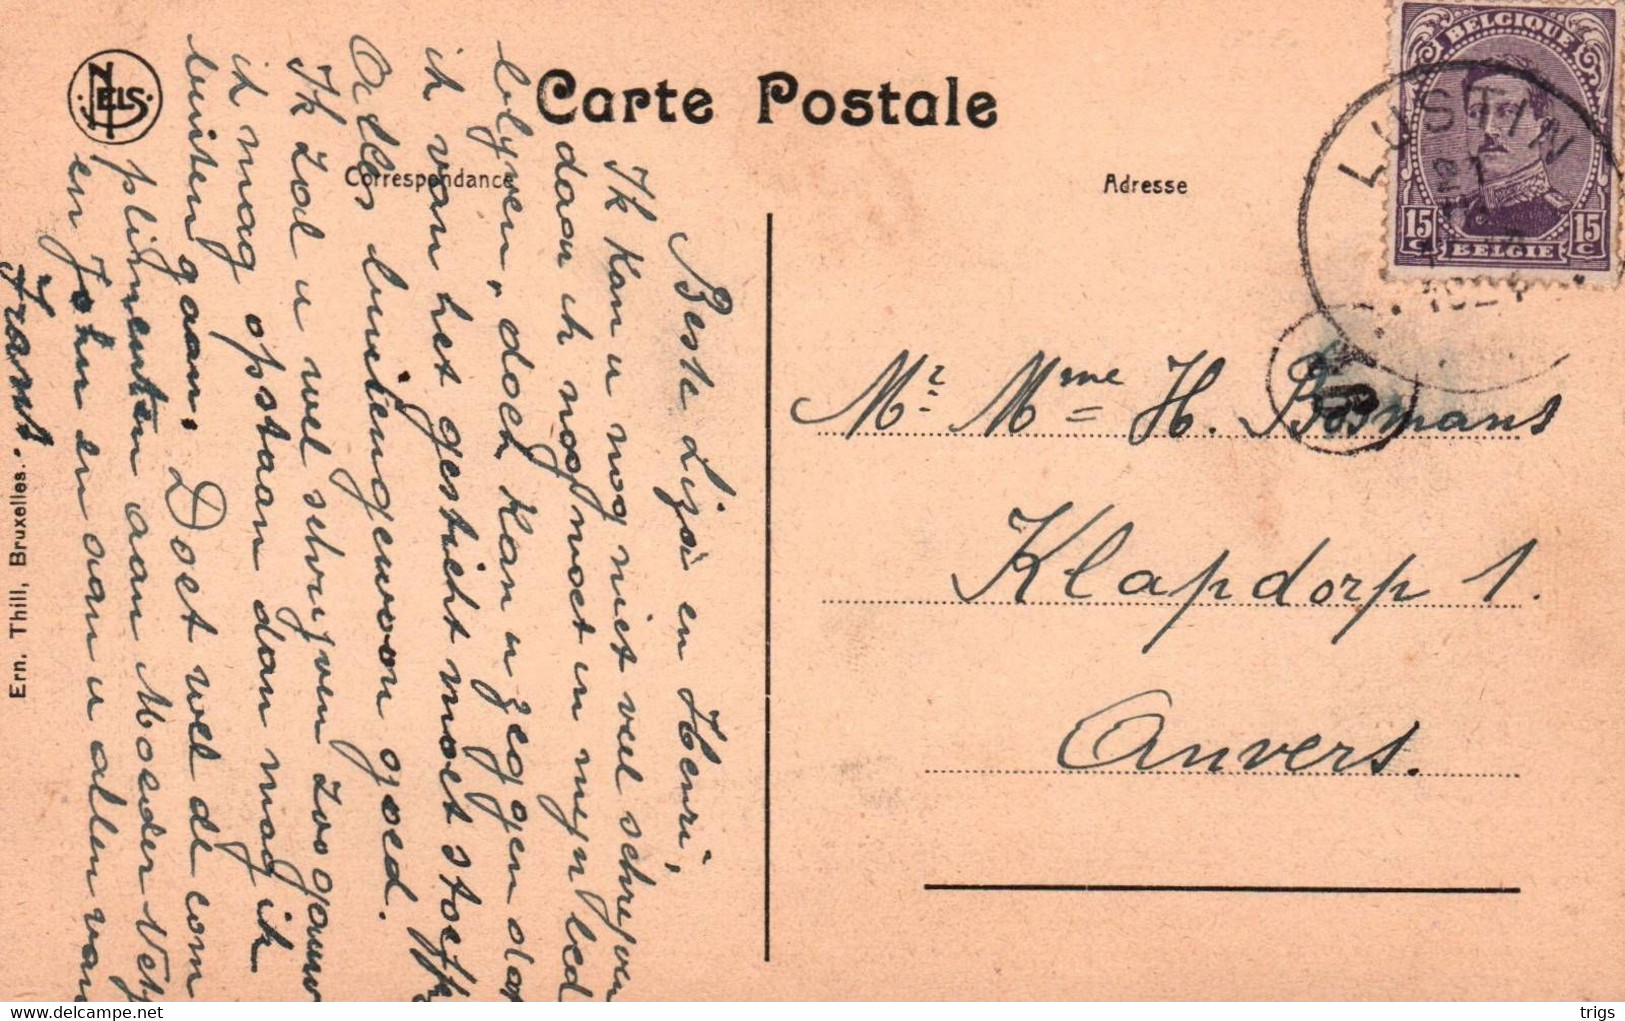 Carte Postale
Correspondance
Adresse
NELS
Ern. Thill, Bruxelles.
BELGIQUE
15 C
15 C
BELGIE
LUSTIN
Beste Liza en Henri,
Ik kan u nog niet veel schrijven
daar ik nog moet in mijn bed
blijven, doch kan u zeggen dat
ik van het gesticht moet stoeff
Alles buitengewoon goed.
Ik zal u wel schrijven zoo gauw
ik mag opstaan dan mag ik
buiten gaan. Doet wel de com
plimenten aan Moeder
en John en aan u allen van
Frans.
Mr. Mme H. Bosmans
Klapdorp 1.
Anvers.
trigs